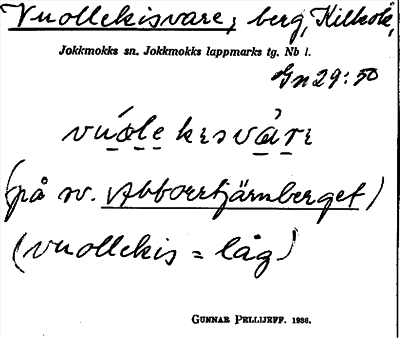 Vuollekisvare, berg, Kilholt,
Jokkmokks sn. Jokkmokks lappmarks tg. Nb l.
Gn 29:50
vúo̱le̱ kɛsvȧ̱rɛ
(på sv. Abborrtjärnberget)
(vuollekis = låg)
GUNNAR PELLIJEFF. 1936.